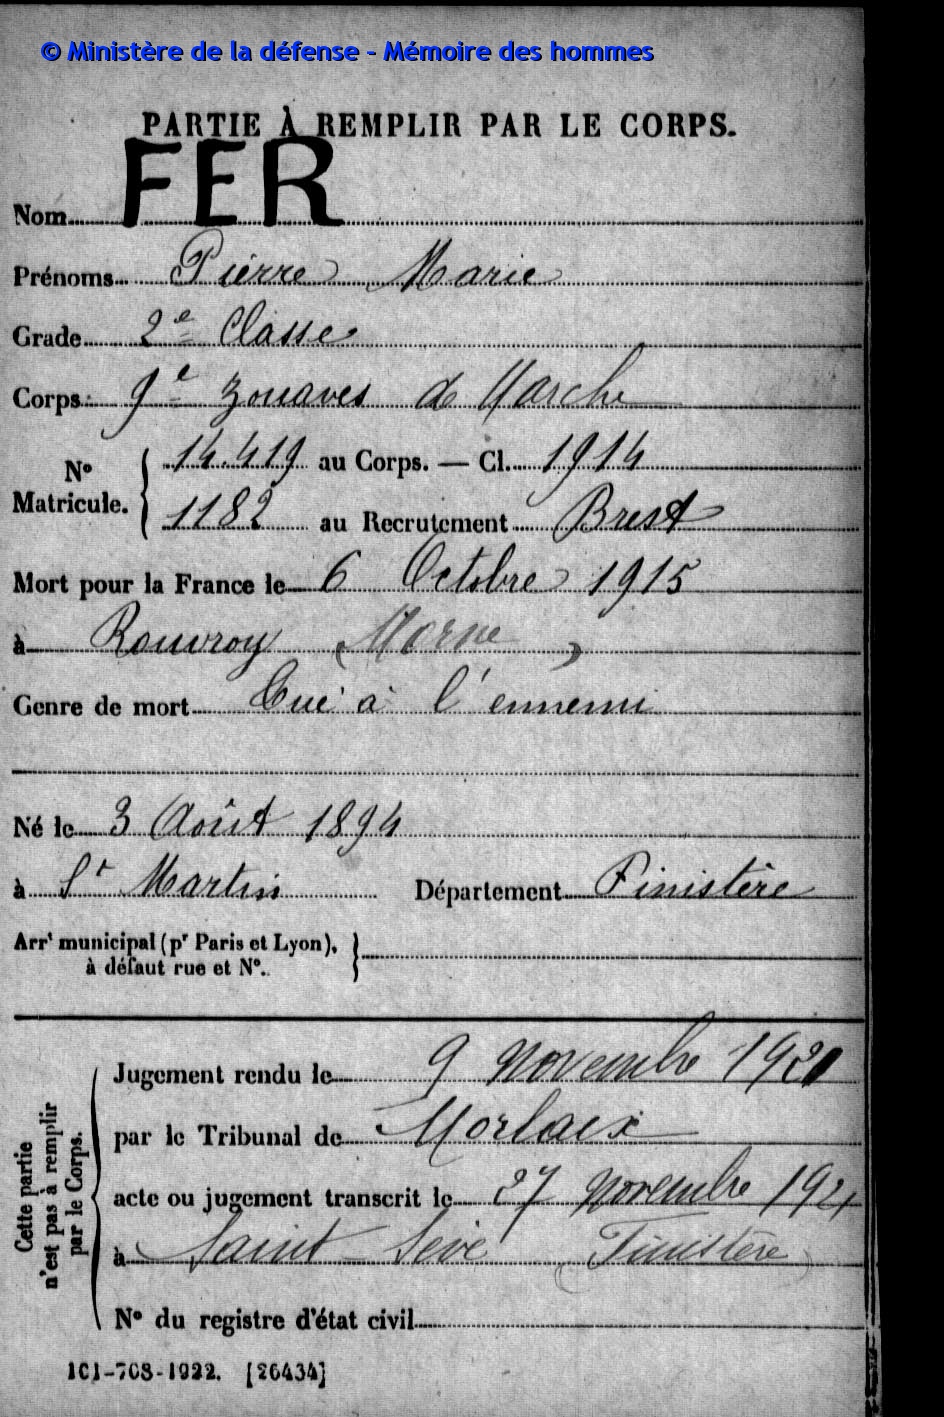 © Ministère de la défense - Mémoire des hommes
PARTIE À REMPLIR PAR LE CORPS.
Nom FER
Prénoms Pierre Marie
Grade 2e Classe
Corps 9e Zouaves de Marche
No Matricule. { 14.419 au Corps. — Cl. 1914
1182 au Recrutement Brest
Mort pour la France le 6 Octobre 1915
à Rouvroy (Marne)
Genre de mort Tué à l'ennemi
Né le 3 Août 1894
à St Martin Département Finistère
Arrt municipal (pr Paris et Lyon), }
à défaut rue et No.
Cette partie
n'est pas à remplir
par le Corps.
Jugement rendu le 9 novembre 1921
par le Tribunal de Morlaix
acte ou jugement transcrit le 27 novembre 1921
à Saint-Seve (Finistère)
No du registre d'état civil
101-708-1922. [26434]